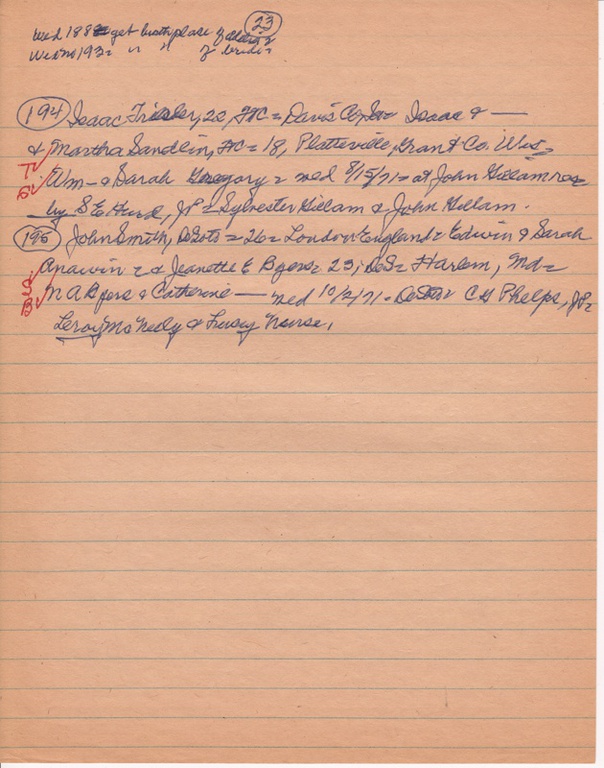 23
Wed 188 get birthplace of
of bride
194 Isaac 22, FC = Davis Co, Isaac & —
& Martha Sandlin, FC = 18, Platteville, Grant Co. Wis =
Wm — & Sarah Gregory = wed 8/15/71 = at John Gillam res
by S E Hurd, JP = Sylvester Gillam & John Gillam.
195 John Smith, DeSoto = 26 = London England = Edwin & Sarah
= & Jeanette E Byers = 23, DeS = Harlem, Md =
M A Byers & Catherine — wed 10/2/71 = C H Phelps, JP =
Leroy McNeely & Nurse,